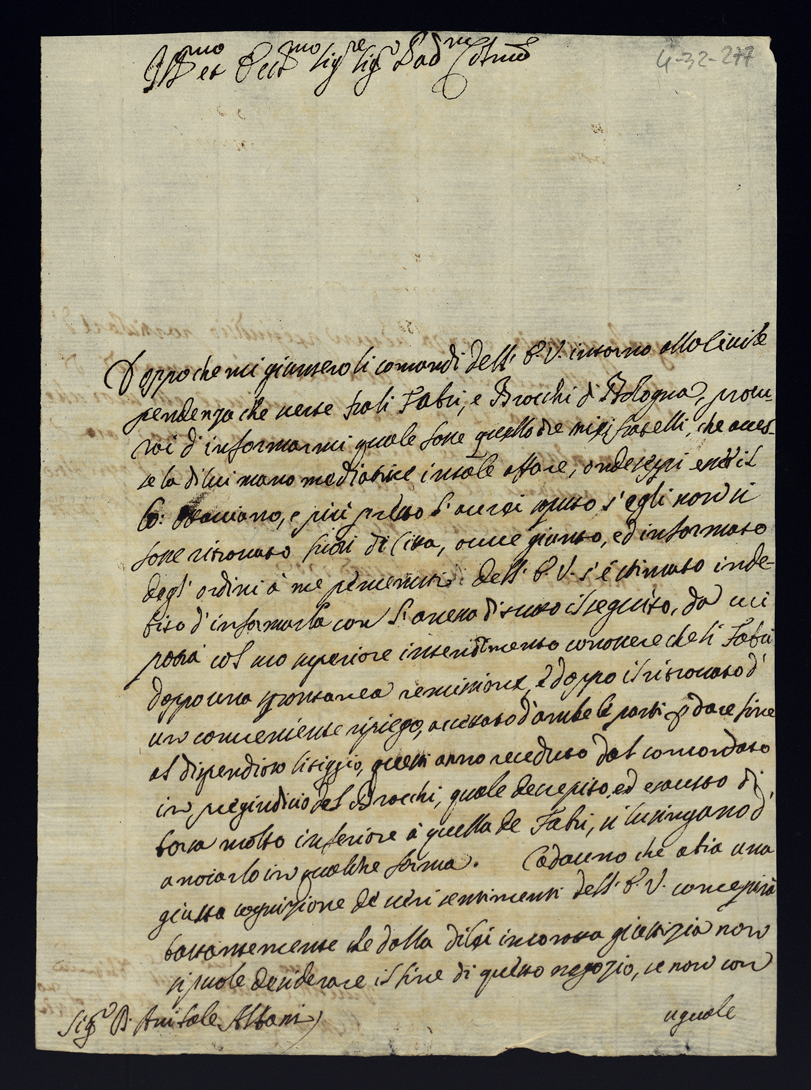 Ill.mo et Ecc.mo Sig.re Sig.r Pad.ne Col.mo
4-32-277
Doppo che mi giunsero li comandi dell' E.V. intorno alla Civile
pendenza che verte fra li Fabri, e Brocchi di Bologna, procu-
rai d'informarmi quale fosse quello de miei fratelli, che aves-
se la di lui mano mediatrice in tale affare, ond'esser
Co: Ottaviano, e più presto l'avrei s'egli non si
fosse ritrovato fuori di Città, ove giunto, ed informato
degl' ordini à me pervenuti dell' E.V. s'è stimato in de-
bito d'informarla con l'annesso di tutto il seguito, da cui
potrà col suo superiore intendimento conoscere che li Fabri
doppo una spontanea remissione, e doppo il ritrovato d'
un conveniente ripiego, accettato d'ambe le parti p dare fine
al dispendioso litiggio, questi anno receduto dal concordato
in pregiudicio del Brocchi, quale decrepito, ed esausto di
borsa molto inferiore à quella de Fabri, si lusingano d'
anoiarlo in qualche forma. Cadauno che abia una
giusta cognizione de veri sentimenti dell' E.V. concepirà
bastantemente che dalla di lei incorrotta giustizia non
si puole desiderare il fine di questo negozio, se non con
uguale
Sig.r D. Anibale Albani